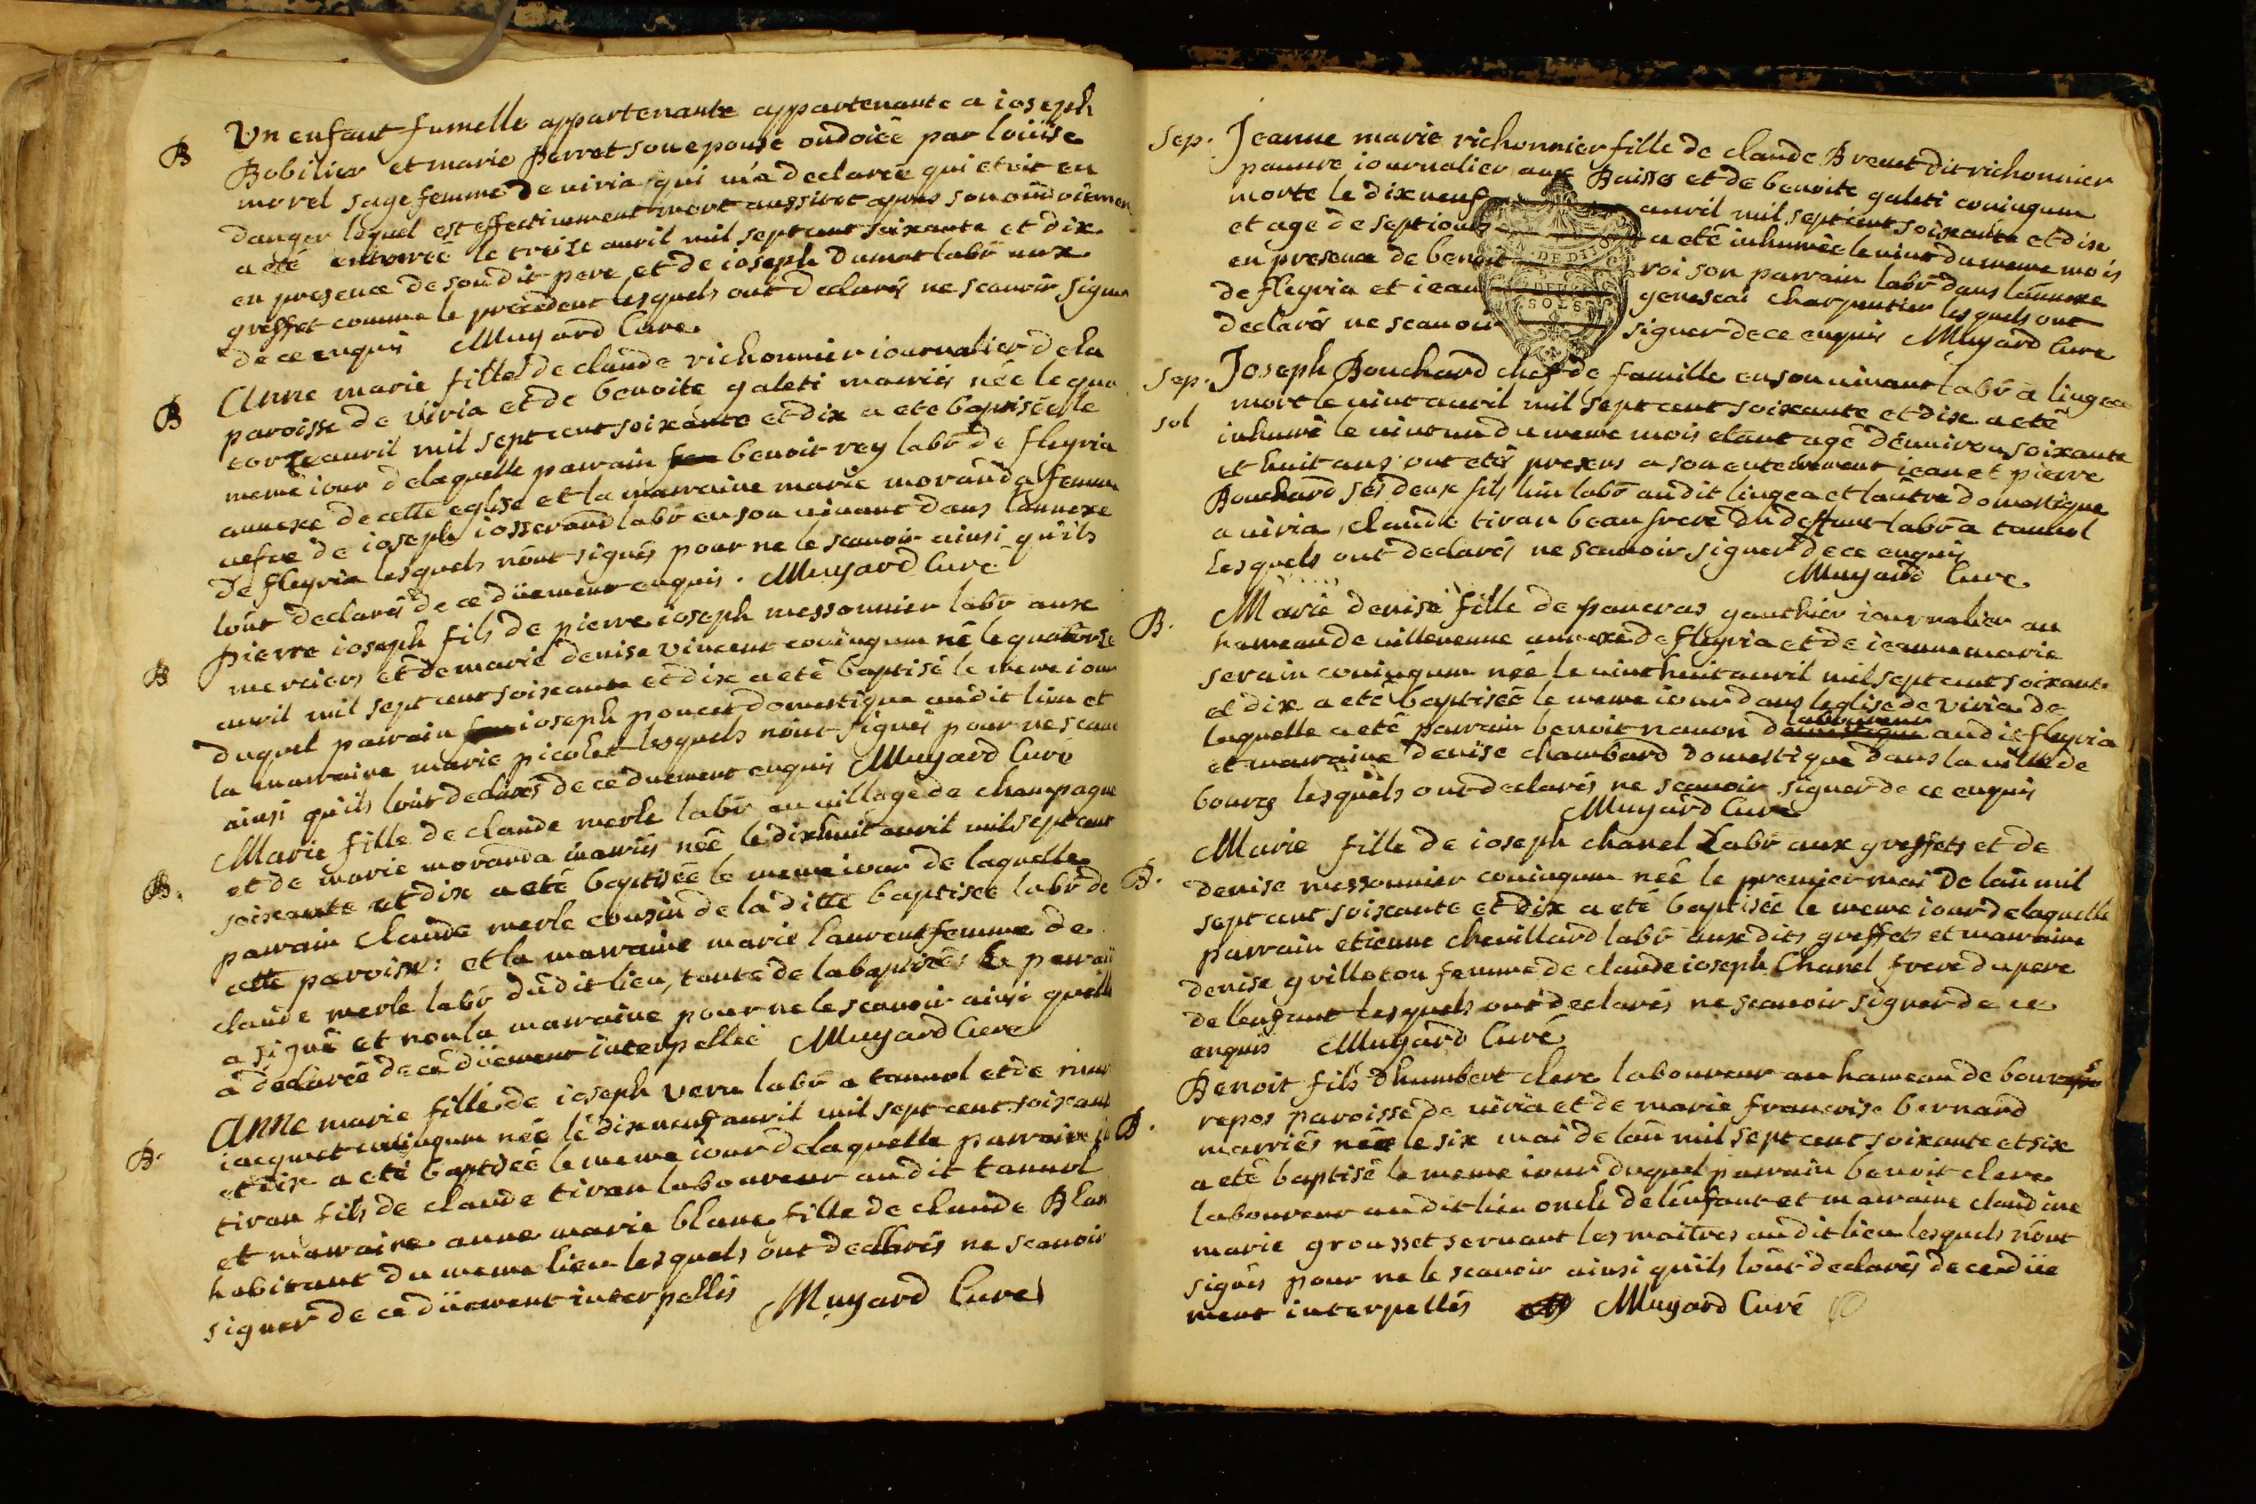 B
Un enfant fumelle appartenante appartenante a ioseph
Bobilier et marie perret son epouse ondoiée par loüise
morel sage femme de viria qui m'a declaréé qui etoit en
danger lequel est effectivement mort aussitot apres son ondoiemen
a eté enterreé le treize auril mil sept cent soixante et dix
en presence de sondit pere et de ioseph Dumot labr aux
greffet comme le precedent lesquels ont declarés ne scauoir signer
de ce enquis Muyard Curé
B
Anne marie fille de claude richonnier iournalier de la
paroisse de viria et de benoite galeti mariés née le qua
torze auril mil sept cent soixante et dix a eté baptiséé le
meme iour de laquelle parrain benoit rey labr de fleyria
annexe de cette eglise et la marraine marie moranda femme
uefue de ioseph iosserand labr en son uiuant dans l'annexe
de fleyria lesquels n'ont signés pour ne le scauoir ainsi qu'ils
l'ont declarés de ce düement enquis. Muyard Curé
B
pierre ioseph fils de pierre ioseph messonnier labr aux
merciers et de marie denise vincent coniugum né le quatorze
auril mil sept cent soixante et dix a eté baptisé le meme iour
duquel parrain ioseph poncet domestique audit lieu et
la marraine marie picolet lesquels n'ont signés pour ne scauoi
ainsi qu'ils l'ont declarés de ce duement enquis Muyard Curé
B.
Marie fille de claude merle labr au uillage de champagne
et de marie moranda mariés néé le dixhuit auril mil sept cent
soixante et dix a eté baptiséé le meme iour de laquelle
parrain claude merle cousin de la ditte baptiséé labr de
cette paroisse: et la marraine marie laurent femme de
claude merle labr dudit lieu, tante de la baptiséé: le parrain
a signé et non la marraine pour ne le scauoir ainsi quelle
a declaréé de ce düement interpelléé Muyard Curé
B.
Anne marie fille de ioseph veru labr a tannol et de
iacquet coniugum néé le dixneuf auril mil sept cent soixante
et dix a eté baptiséé le meme iour de laquelle parrain
tiran fils de claude tiran laboureur audit tannol
et marraine anne marie blanc fille de claude Blan
habitant du meme lieu lesquels ont declarés ne scauoir
signer de ce düement interpellés Muyard Curé
Sep.
Jeanne marie richonnier fille de claude Breuet dit richonnier
pauure iournalier aux Buisses et de benoite galeti coniugum
morte le dixneuf auril mil sept cent soixante et dix
et agé de sept iours a eté inhuméé le uint du meme mois
en presence de benoit roi son parrain labr dans l'annexe
de fleyria et iean geneseai charpentier lesquels ont
declarés ne scauoir signer de ce enquis Muyard Curé
DE DIJO
SOLS
Sep.
sol
Joseph Bouchard chef de famille en son uiuant labr a lingea
mort le uint auril mil sept cent soixante et dix a eté
inhumé le uint un du meme mois etant agé d'enuiron soixante
et huit ans ont etés presens a son enterrement iean et pierre
Bouchard ses deux fils l'un labr audit lingea et l'autre domestique
a uiria, claude tiran beau frere du deffunt labr a tannol
lesquels ont declarés ne scauoir signer de ce enquis
Muyard Curé
B.
Marie denise fille de pancras gauthier iournalier au
hameau de uilleneuue annexe de fleyria et de ieanne marie
serain coniugum néé le uint huit auril mil sept cent soixante
et dix a eté baptiséé le meme iour dans l'eglise de viria de
laboureur
laquelle a eté parrain benoit nanon domestique audit fleyria
et marraine denise chambard domestique dans la uille de
bourg lesquels ont declarés ne scauoir signer de ce enquis
Muyard Curé
B.
Marie fille de ioseph chanel Labr aux greffets et de
denise messonnier coniugum néé le premier mai de l'an mil
sept cent soixante et dix a eté baptiséé le meme iour de laquelle
parrain etienne cheuillard labr aux dits greffets et marraine
denise grilleton femme de claude ioseph Chanel frere du pere
de l'enfant lesquels ont declarés ne scauoir signer de ce
enquis Muyard Curé
B.
Benoit fils d'humbert clerc laboureur au hameau de bour
repos paroisse de uiria et de marie francoise bernard
marriés né le six mai de l'an mil sept cent soixante et dix
a eté baptisé le meme iour duquel parrain benoit clerc
laboureur audit lieu oncle de l'enfant et marraine claudine
marie grousset seruant les maitres audit lieu lesquels n'ont
signés pour ne le scauoir ainsi qu'ils l'ont declarés de ce düe
ment interpellés Muyard Curé